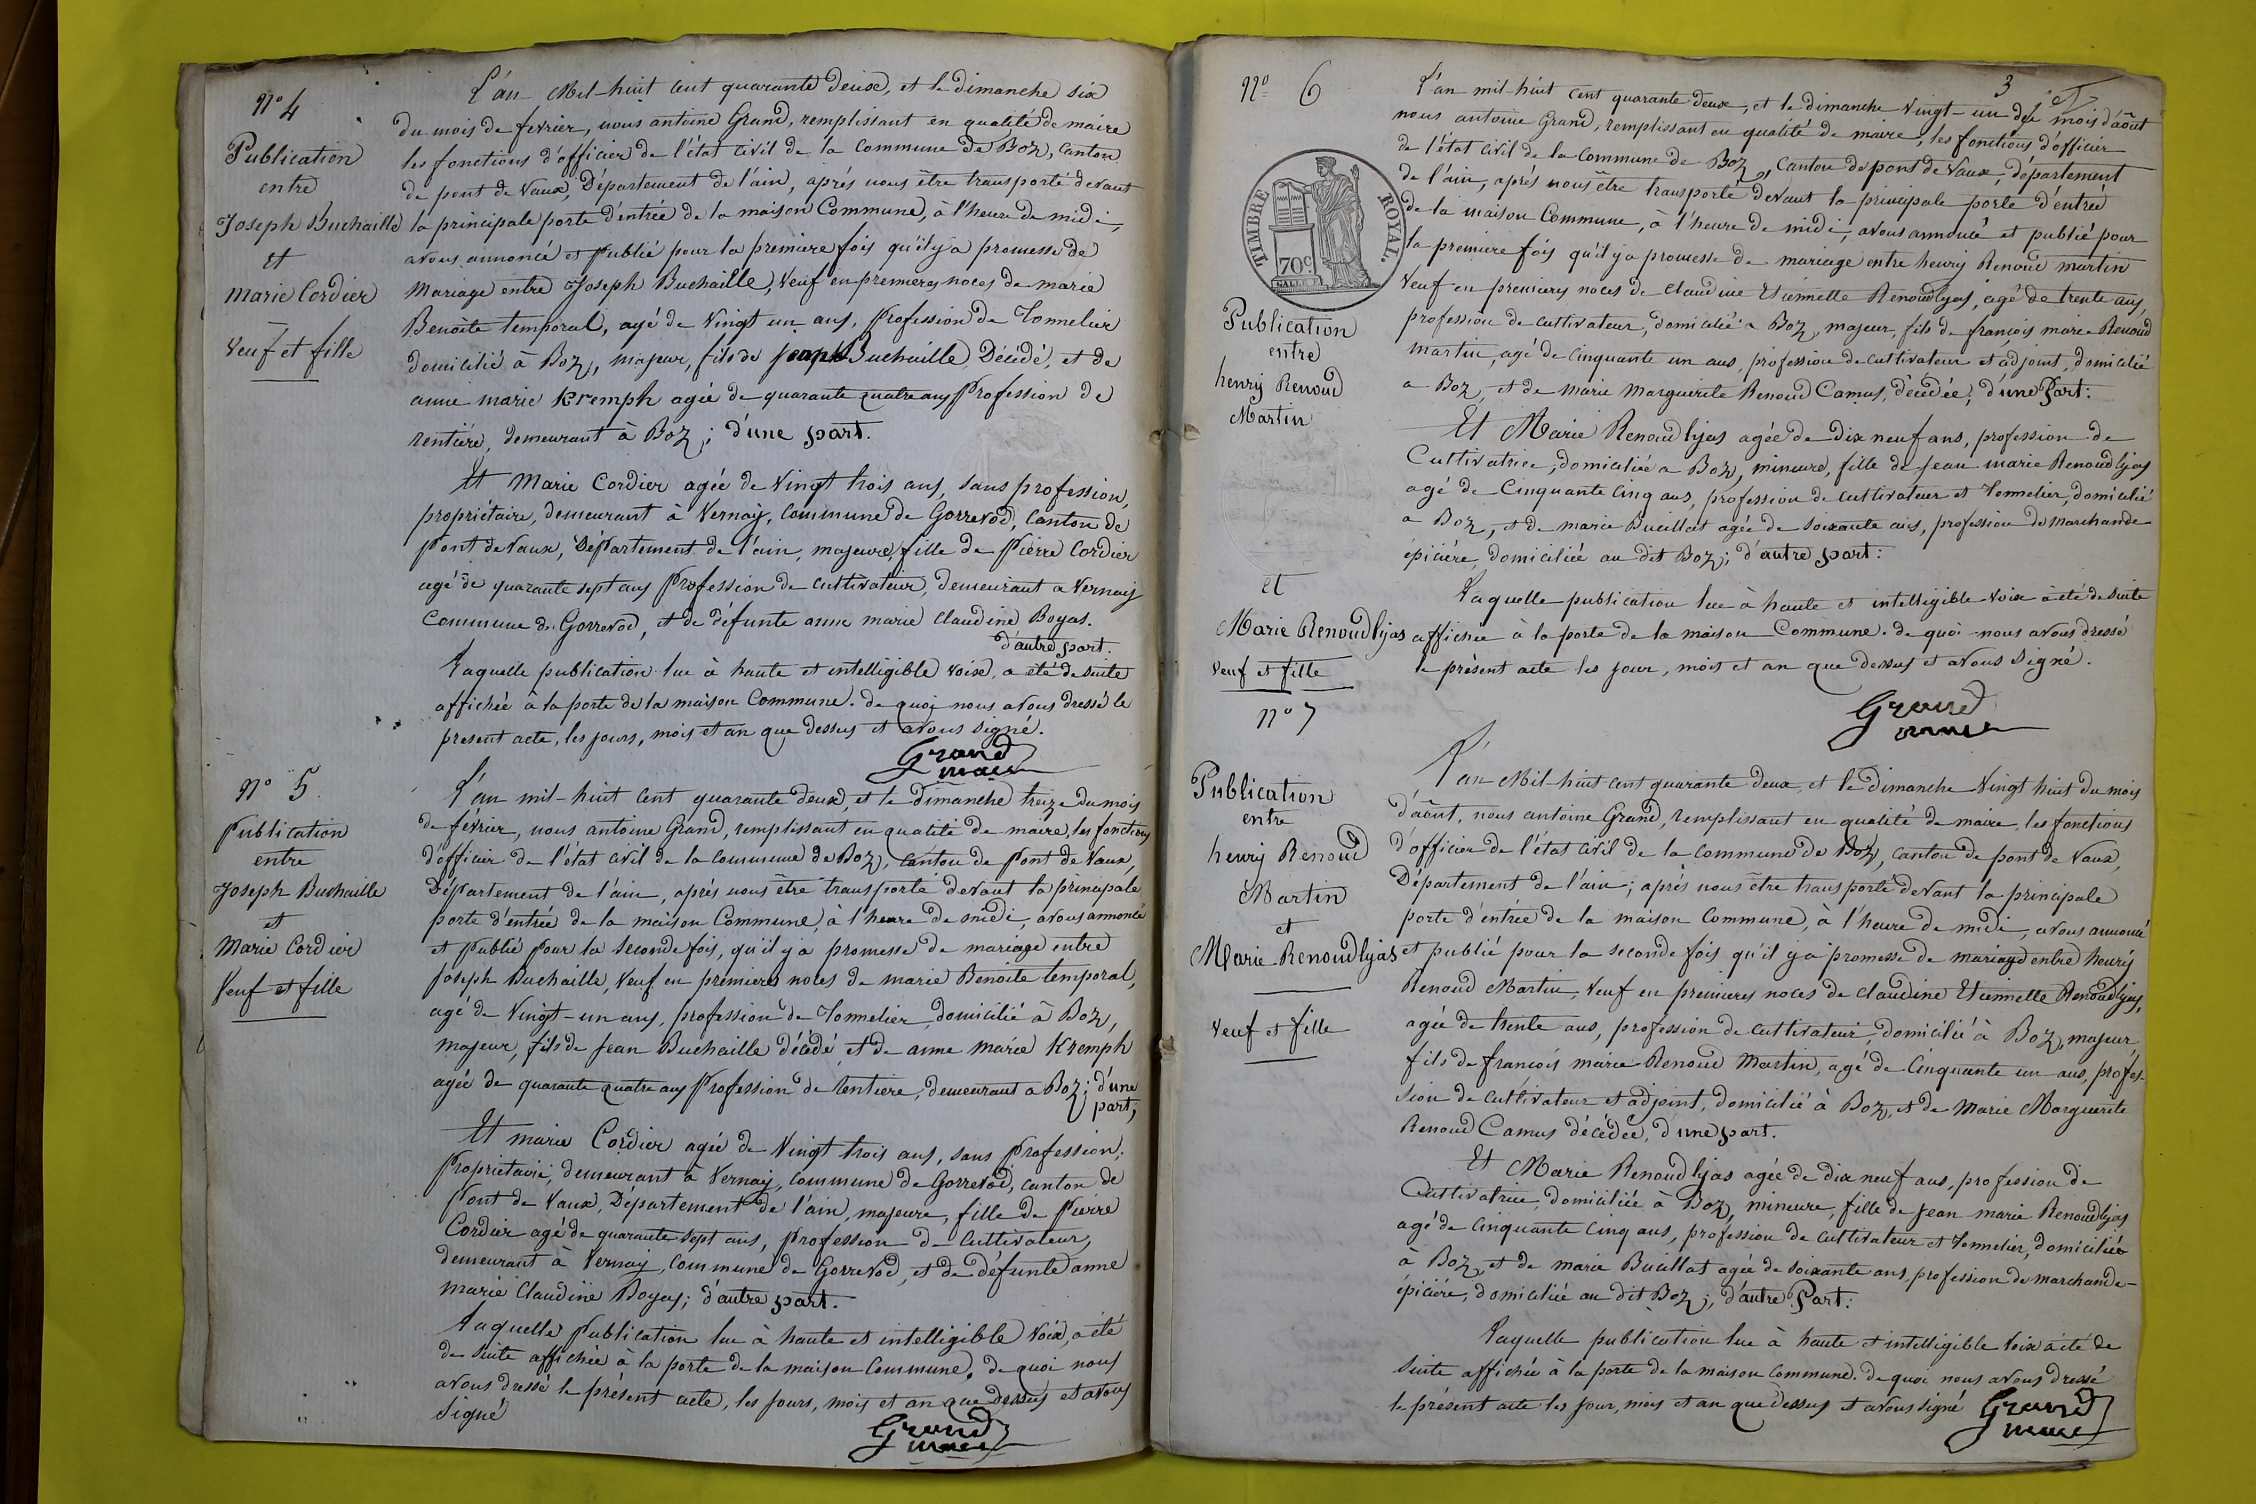 N° 4
Publication
entre
Joseph Buchaille
et
Marie Cordier
Veuf et fille
L'an Mil-huit cent quarante deux, et le dimanche six
du mois de fevrier, nous antoine Grand, remplissant en qualité de maire
les fonctions d'officier de l'état civil de la Commune de Boz, Canton
de pont de Vaux, Département de l'ain, aprés nous être transporté devant
la principale porte d'entrée de la maison Commune, à l'heure de midi,
avons annoncé et publié pour la premiere fois qu'il y a promesse de
Mariage entre Joseph Buchaille, Veuf en premieres noces de marie
Benoite temporal, agé de Vingt un ans, profession de Tonnelier
domicilié à Boz, majeur, fils de Buchaille Décédé, et de
anne marie Kremph agée de quarante quatre ans Profession de
rentière, demeurant à Boz; d'une part.
Et Marie Cordier agée de Vingt trois ans, sans profession,
propriétaire, demeurant à Vernay, Commune de Gorrevod, Canton de
Pont de Vaux, Département de l'ain, majeure, fille de Pierre Cordier
agé de quarante sept ans Profession de cultivateur, demeurant a Vernay
Commune de Gorrevod, et de défunte anne marie Claudine Boyas.
d'autre part.
Laquelle publication lue à haute et intelligible voix, a été de suite
affichée à la porte de la maison Commune. de quoi nous avons dressé le
present acte, les jours, mois et an que dessus et avons signé.
Grand
maire
N° 5
Publication
entre
Joseph Buchaille
et
Marie Cordier
Veuf et fille
L'an mil-huit cent quarante deux, et le Dimanche treize du mois
de février, nous antoine Grand, remplissant en qualité de maire, les fonctions
d'officier de l'état civil de la Commune de Boz, Canton de Pont de Vaux,
Département de l'ain, aprés nous être transporté devant la principale
porte d'entrée de la maison Commune, à l'heure de midi, avons annoncé
et Publié Pour la Seconde fois, qu'il y a promesse de mariage entre
Joseph Buchaille, Veuf en premieres noces de marie Benoite temporal,
agé de Vingt-un ans, profession de Tonnelier, domicilié à Boz,
majeur, fils de Jean Buchaille décédé et de anne marie Kremph
agée de quarante quatre ans Profession de rentiere, demeurant a Boz; d'une
part,
Et marie Cordier agée de Vingt trois ans, sans Profession,
Propriétaire, demeurant à Vernay, Commune de Gorrevod, canton de
Pont de Vaux, Département de l'ain, majeure, fille de Pierre
Cordier agé de quarante sept ans, profession de Cultivateur,
demeurant à Vernay, Commune de Gorrevod, et de défunte anne
marie Claudine Boyas; d'autre part.
Laquelle Publication lue à haute et intelligible Voix, a été
de suite affichée à la porte de la maison Commune. de quoi nous
avons dressé le présent acte, les jours, mois et an que dessus et avons
signé
Grand
maire
3
N° 6
TIMBRE ROYAL.
70c
Publication
entre
henry Renoud
Martin
et
Marie Renoudlyas
Veuf et fille
L'an mil huit cent quarante deux, et le dimanche Vingt-un du mois d'août
nous antoine Grand, remplissant en qualité de maire, les fonctions d'officier
de l'état civil de la Commune de Boz, Canton de pont de Vaux, département
de l'ain, aprés nous être transporté devant la principale porte d'entrée
de la maison Commune, à l'heure de midi, avons annoncé et publié pour
la premiere fois qu'il y a promesse de mariage entre henry Renoud martin
Veuf en premieres noces de Claudine Etiennette Renoudlyas, agé de trente ans,
profession de cultivateur, domicilié a Boz, majeur, fils de françois marie Renoud
martin, agé de cinquante un ans, profession de cultivateur et adjoint, domicilié
a Boz, et de Marie Marguerite Renoud Camus, décédée, d'une Part:
Et Marie Renoudlyas agée de Dix neuf ans, profession de
Cultivatrice, domiciliée a Boz, mineure, fille de Jean marie Renoudlyas
agé de Cinquante cinq ans, profession de cultivateur et Tonnelier, domicilié
a Boz, et de marie Buiellat agée de soixante ans, profession de marchande
épicière, domiciliée au dit Boz; d'autre part:
Laquelle publication lue à haute et intelligible voix a été de suite
affichée à la porte de la maison Commune. de quoi nous avons dressé
le présent acte les jour, mois et an que dessus et avons signé.
Grand
maire
N° 7
Publication
entre
henry Renoud
Martin
et
Marie Renoudlyas
Veuf et fille
L'an Mil-huit cent quarante deux, et le dimanche Vingt huit du mois
d'août, nous antoine Grand, remplissant en qualité de maire, les fonctions
d'officier de l'état civil de la commune de Boz, canton de pont de Vaux,
Département de l'ain; aprés nous être transporté devant la principale
porte d'entrée de la maison Commune, à l'heure de midi, avons annoncé
et publié pour la seconde fois qu'il y a promesse de mariage entre henry
Renoud Martin, Veuf en premieres noces de Claudine Etiennette Renoudlyas,
agée de trente ans, profession de cultivateur, domicilié à Boz, majeur,
fils de françois marie Renoud Martin, agé de Cinquante un ans, profes-
sion de cultivateur et adjoint, domicilié à Boz, et de Marie Marguerite
Renoud Camus décédée, d'une part.
Et Marie Renoudlyas agée de dix neuf ans, profession de
Cultivatrice, domiciliée à Boz, mineure, fille de Jean marie Renoudlyas
agé de cinquante cinq ans, profession de cultivateur et Tonnelier, domiciliée
à Boz, et de marie Buiellat agée de soixante ans, profession de marchande-
épicière, domiciliée au dit Boz; d'autre Part:
Laquelle publication lue à haute et intelligible Voix a été de
suite affichée à la porte de la maison Commune. de quoi nous avons dressé
le présent acte les jour, mois et an que dessus et avons signé
Grand
maire